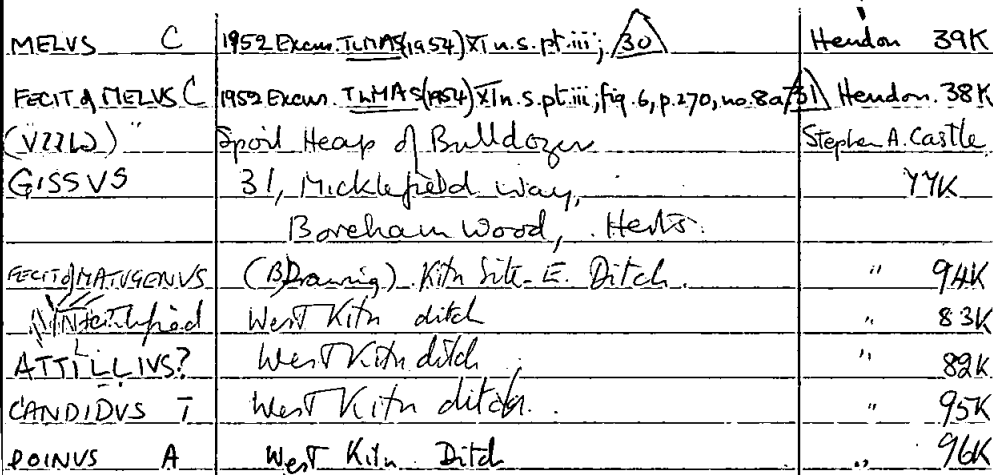 MELVS C 1952 Excav. TLMAS (1954) XI n.s. pt. iii; 30 Hendon 39K
FECIT of MELVS C 1952 Excav. TLMAS (1954) XI n.s. pt. iii; fig. 6, p. 270, no. 8a, 31 Hendon. 38K
" Spoil Heap of Bulldozer Stephen A. Castle
GISSVS 31, Micklefield Way, 77K
Boreham Wood, Herts.
FECIT of MATUGENVS (B Drawing) Kiln Site - E. Ditch. " 94K
West Kiln ditch " 83K
ATTILLIVS? West Kiln ditch " 82K
CANDIDVS T West Kiln ditch. " 95K
DOINVS A West Kiln Ditch " 96K